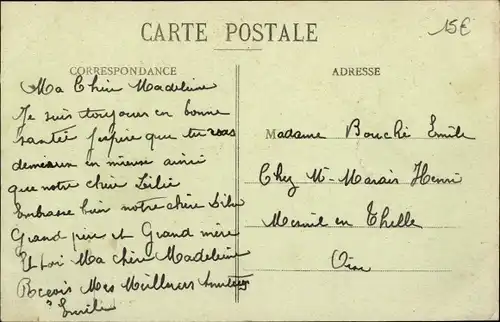 CARTE POSTALE
15€
CORRESPONDANCE
Ma Chère Madeleine
Je suis toujours en bonne
santé j'espère que tu vas
de en même ainsi
que notre chère Lilie
Embrasse bien notre chère Lilie
Grand père et Grand mère
Et toi Ma chère Madeleine
Recois Mes Meilleurs
Emile
ADRESSE
Madame Bouché Emile
Chez Mr Marais Henri
Mesnil en Thelle
Oise